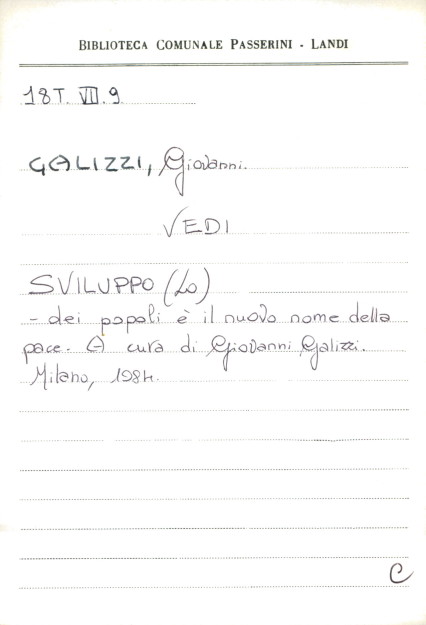 BIBLIOTECA COMUNALE PASSERINI - LANDI
18T. VII. 9.
GALIZZI, Giovanni.
VEDI
SVILUPPO (Lo)
- dei popoli è il nuovo nome della
pace. A cura di Giovanni Galizzi.
Milano, 1984.
C